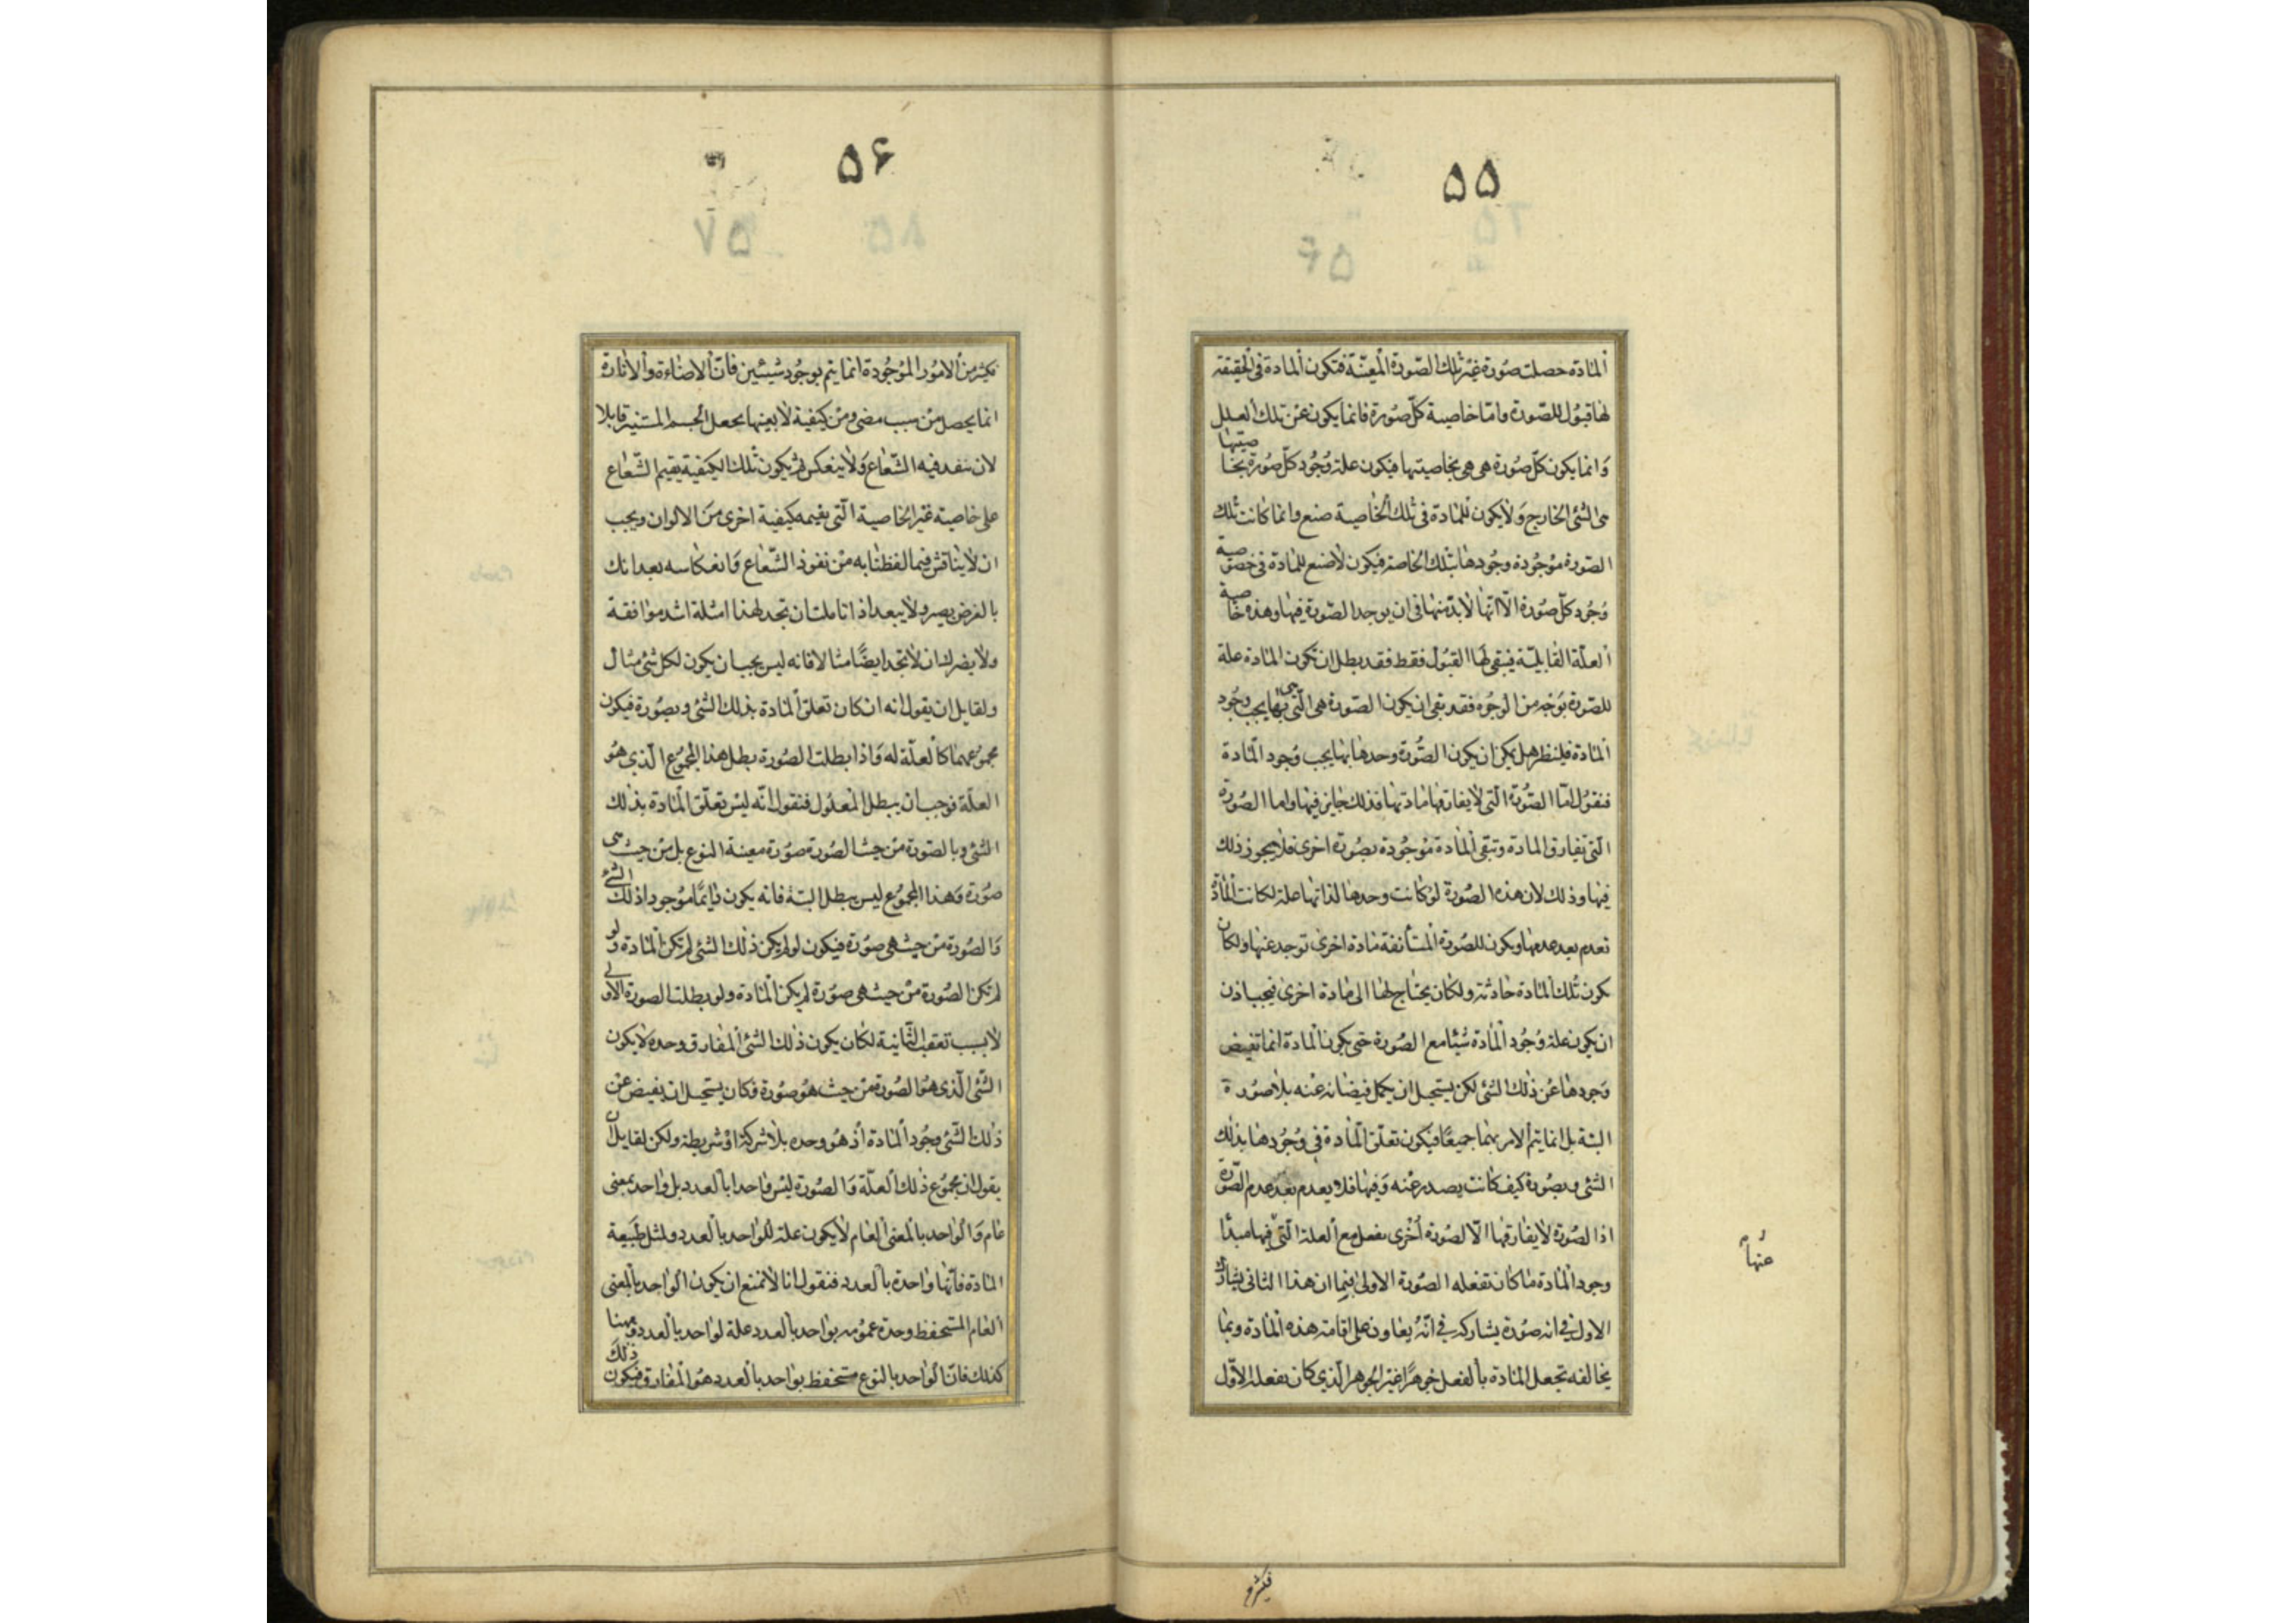 ۵۵
ألمادة حصلت صورة غير تلك الصورة المعينة فتكون ألمادة فى الحقيقة
لها قبول للصورة واما خاصية كل صورة فانما يكون عن تلك العلل
وانما يكون كل صورة هى هى بخاصيتها فيكون علة وجود كل صورة بخاصيتها
هى الشئ الخارج ولا يكون للمادة فى تلك الخاصية صنع وانما كانت تلك
الصورة موجودة وجودها بتلك الخاصة فيكون لا صنع للمادة فى خصوصية
وجود كل صورة الا انها لا بد منها فى ان يوجد الصورة فيها وهذه خاصية
العلة القابلية فيبقى لها القبول فقط فقد بطل ان تكون المادة علة
للصورة بوجه من الوجوه فقد بقى ان يكون الصورة هى التى بها يجب وجود
المادة فلينظر هل يمكن ان يكون الصورة وحدها بها يجب وجود المادة
فنقول اما الصورة التى لا يفارقها مادتها فذلك جايز فيها واما الصورة
التى تفارق المادة وتبقى المادة موجودة بصورة اخرى فلا يجوز ذلك
فيها وذلك لان هذه الصورة لو كانت وحدها لذاتها علة لكانت المادة
تعدم بعدمها ويكون للصورة المستأنفة مادة اخرى توجد عنها ولكان
يكون تلك المادة حادثة ولكان يحتاج لها الى مادة اخرى فيجب اذن
ان يكون علة وجود المادة شيئا مع الصورة حتى يكون المادة انما تفيض
وجودها عن ذلك الشئ لكن يستحيل ان يكمل فيضانه عنه بلا صورة
البتة بل انما يتم الامر بهما جميعا فيكون تعلق المادة فى وجودها بذلك
الشئ وبصورة كيف كانت يصدر عنه وفيها فلا يعدم بعدم الصورة
اذ الصورة لا يفارقها الا لصورة أخرى يفعل مع العلة التى فيها مبدأ
عنها
وجود المادة ما كان تفعله الصورة الاولى بنما ان هذا الثانى يشارك
الاول فى انه صورة يشاركه فى انه يعاون على اقامة هذه المادة وبما
يخالفه تجعل المادة بالفعل جوهرا غير الجوهر الذى كان يفعله الاول
فكثير من
۵۶
فكثير من الامور الموجودة انما يتم بوجود شيئين فان الاضاءة والانارة
انما يحصل من سبب مضئ ومن كيفية لا بعينها يجعل الجسم المستنير قابلا
لان ينفد فيه الشعاع ولا ينعكس ثم يكون تلك الكيفية يقيم الشعاع
على خاصية غير الخاصية التى يقيمه كيفية اخرى من الالوان ويجب
ان لا يناقش فيما لفظنا به من نفوذ الشعاع وانعكاسه بعد انك
بالغرض بصير ولا يبعد اذا تاملت ان تجد لهذا امثلة اشد موافقة
ولا يضرك ان لا تجد ايضا مثالا فانه ليس يجب ان يكون لكل شئ مثال
ولقايل ان يقول انه ان كان تعلق المادة بذلك الشئ وبصورة فيكون
مجموعهما كالعلة له واذا بطلت الصورة بطل هذا المجموع الذى هو
العلة فوجب ان يبطل المعلول فنقول انه ليس تعلق المادة بذلك
الشئ وبالصورة من حيث الصورة صورة معينة النوع بل من حيث هى
صورة وهذا المجموع ليس يبطل البتة فانه يكون دايما موجودا ذلك الشئ
والصورة من حيث هى صورة فيكون لو لم يكن ذلك الشئ لم تكن المادة ولو
لم تكن الصورة من حيث هى صورة لم يكن المادة ولو بطلت الصورة الاولى
لا بسبب تعقب الثانية لكان يكون ذلك الشئ المفارق وحده لا يكون
الشئ الذى هو الصورة من حيث هو صورة فكان يستحيل ان يفيض عن
ذلك الشئ وجود المادة اذ هو وحده بلا شركة او شريطة ولكن لقايل ان
يقول ان مجموع ذلك العلة والصورة ليس واحدا بالعدد بل واحد بمعنى
عام والواحد بالمعنى العام لا يكون علة للواحد بالعدد ولمثل طبيعة
المادة فانها واحدة بالعدد فنقول انا لا نمنع ان يكون الواحد بالمعنى
العام المستحفظ وحدة عمومه بواحد بالعدد علة لواحد بالعدد وههنا
كذلك فان الواحد بالنوع مستحفظ بواحد بالعدد هو المفارق فيكون ذلك